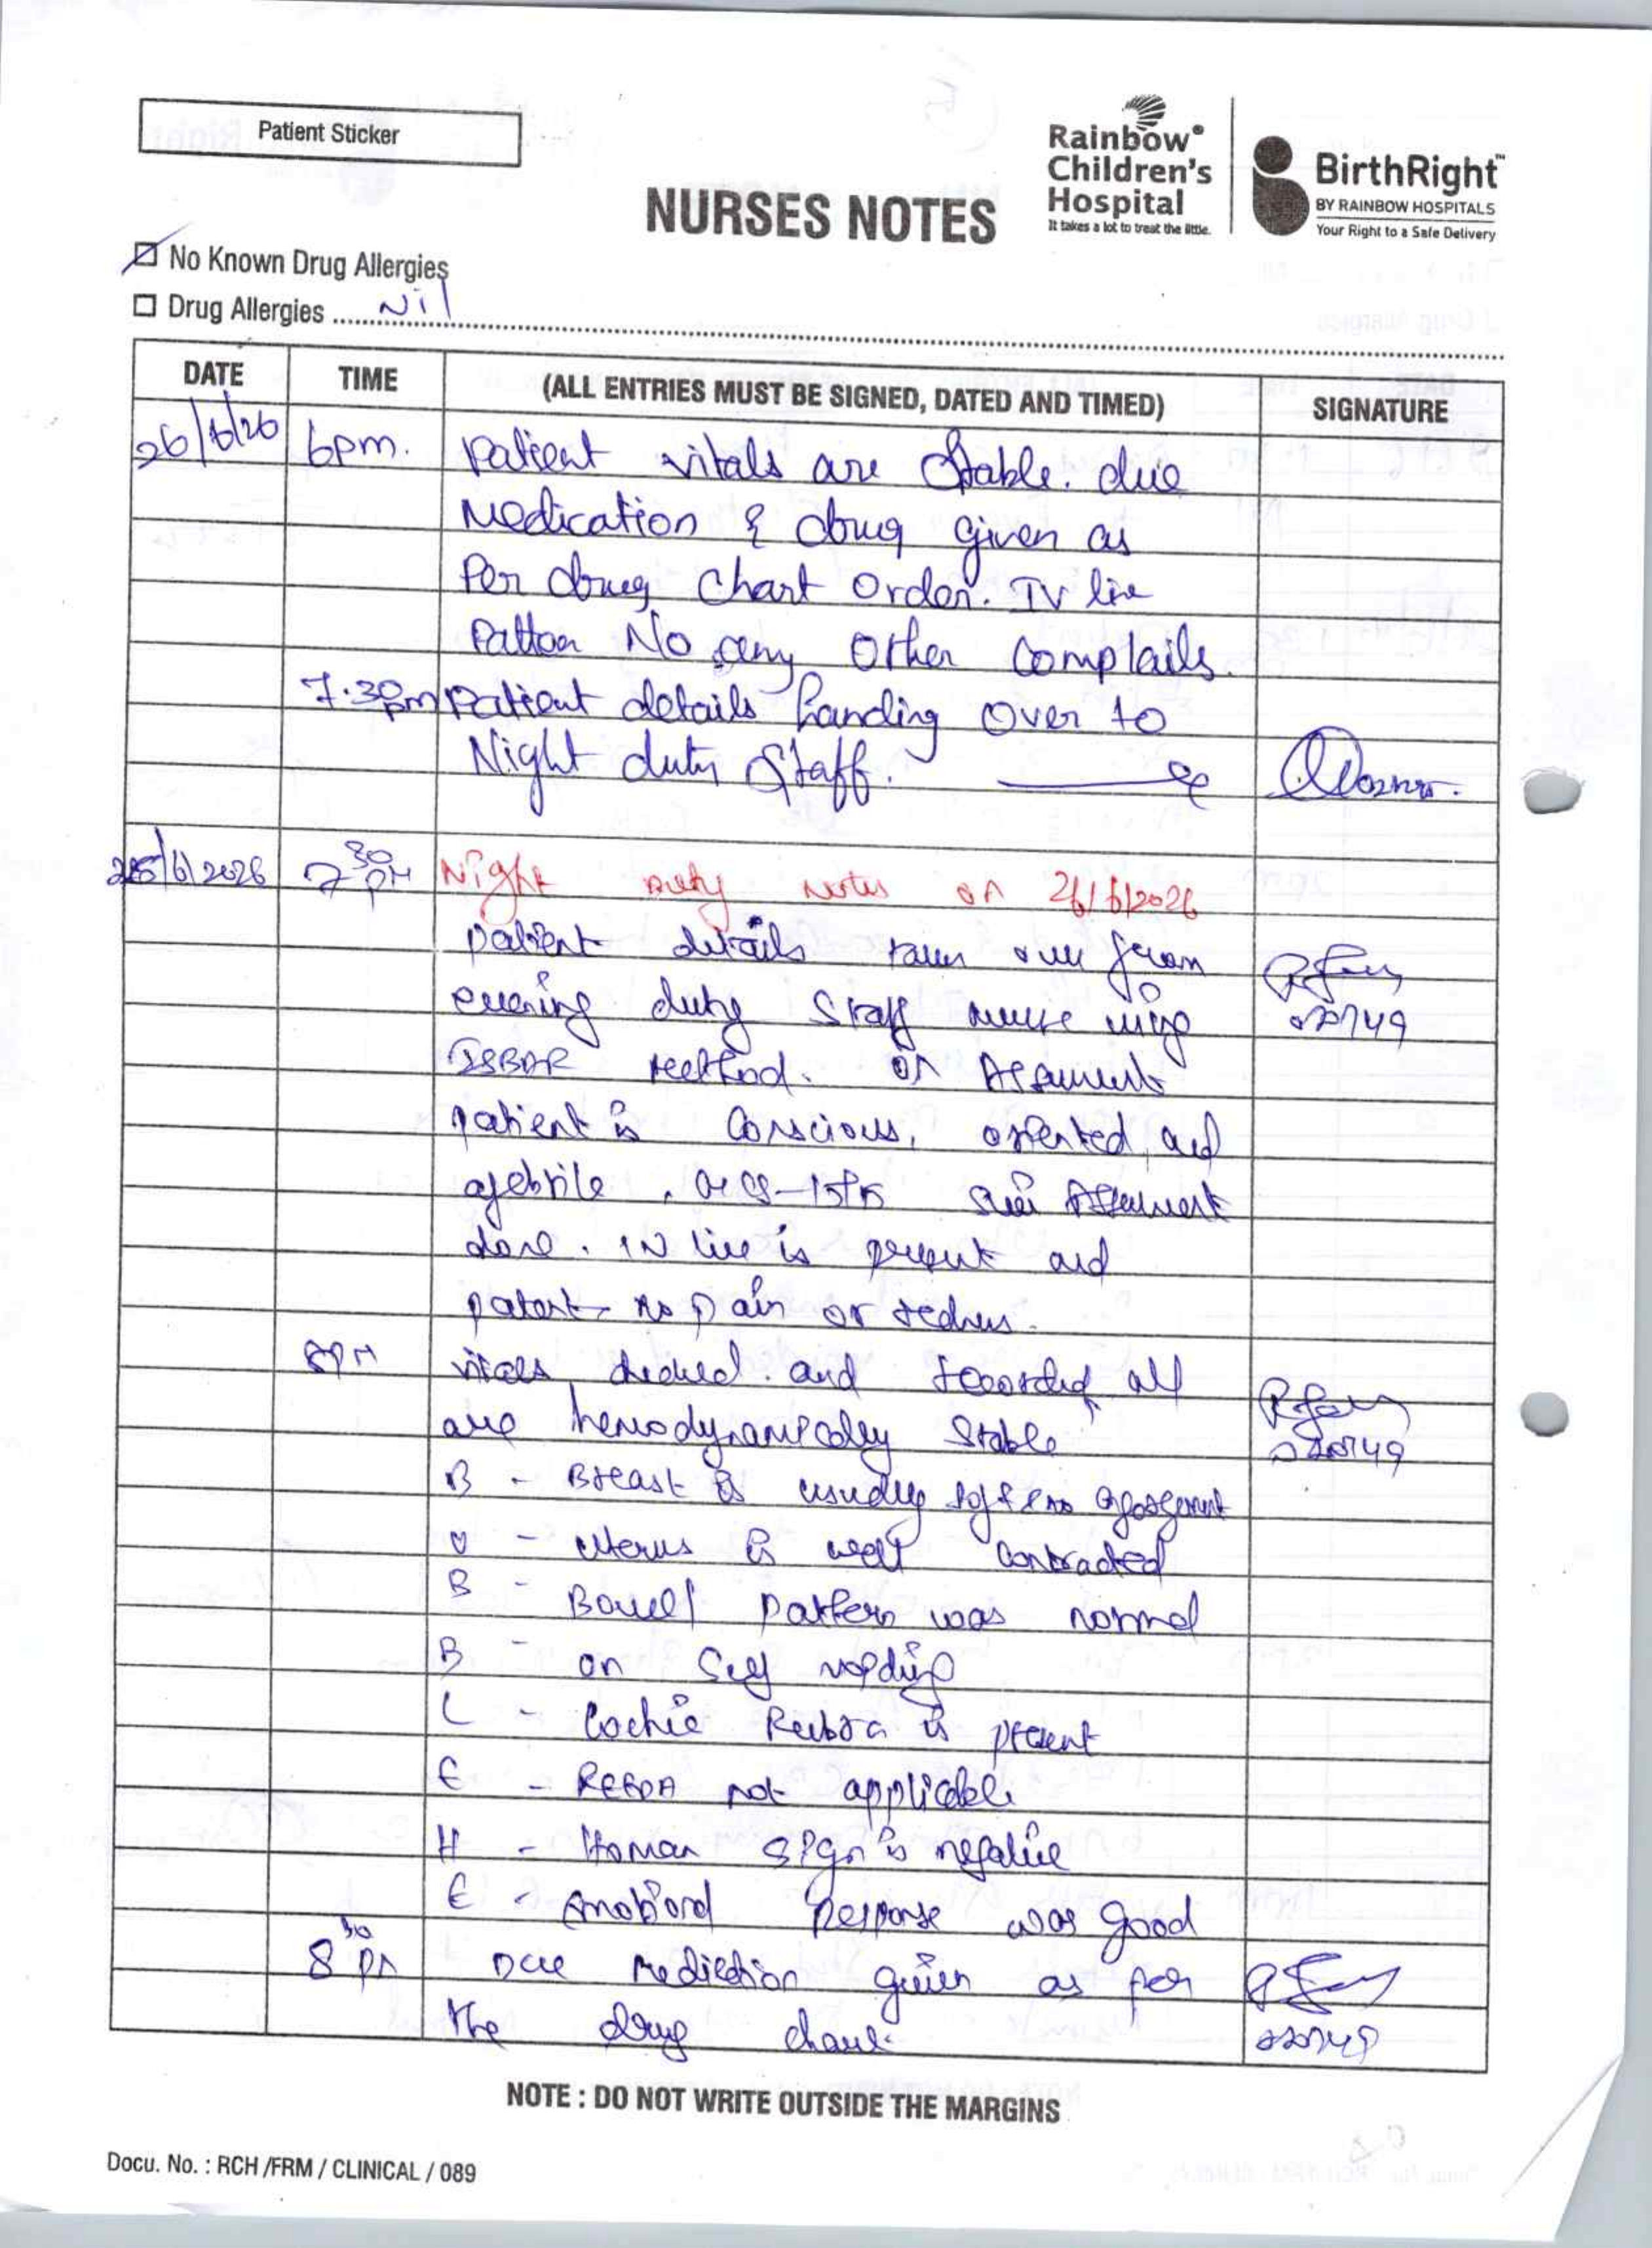 Patient Sticker
Rainbow®
Children's
Hospital
It takes a lot to treat the little.
BirthRight™
BY RAINBOW HOSPITALS
Your Right to a Safe Delivery
NURSES NOTES
No Known Drug Allergies
Drug Allergies ..... Nil
DATE TIME (ALL ENTRIES MUST BE SIGNED, DATED AND TIMED) SIGNATURE
26/6/26 6pm. Patient vitals are Stable. due
Medication & drug given as
Per drug Chart Order. IV line
No any Other Complails.
7.30pm Patient details handing Over to
Night duty Staff.
26/6/2026 7 30 PM Night Duty Notes on 26/6/2026
patient details taken over from
evening duty Staff nurse using
ISBAR method. on Assessment
patient is Conscious, oriented, and
afebrile, GCS-15/15 Assessment
done. IV line is present and
patent, no pain or redness.
8PM vitals checked and recorded, all
are hemodynamically Stable
B - Breast is usually soft & no
U - Uterus is well contracted
B - Bowel pattern was normal
B - on Self voiding
L - Lochia Rubra is present
E - REEDA not applicable
H - Homan sign is negative
E - Emotional Response was good
8 30 PM Due Medication given as per
the drug chart.
NOTE : DO NOT WRITE OUTSIDE THE MARGINS
Docu. No. : RCH /FRM / CLINICAL / 089